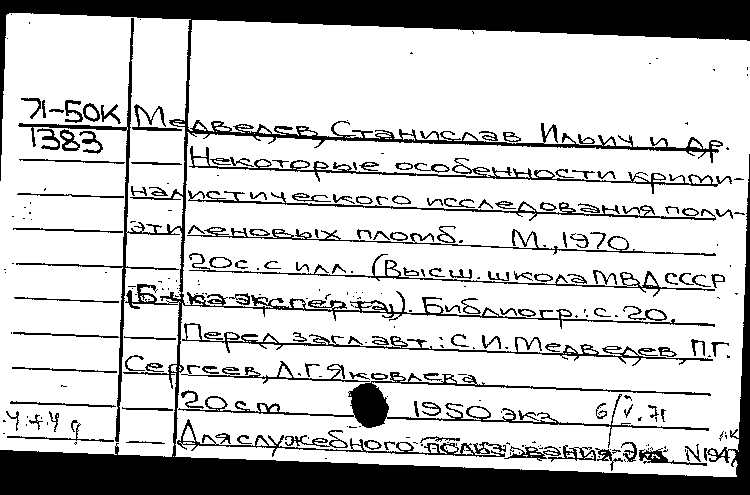 71-50К Медведев, Станислав Ильич и др.
1383
Некоторые особенности крими-
налистического исследования поли-
этиленовых пломб. М., 1970.
20с. с илл. (Высш. школа МВД СССР
(Б-чка эксперта)). Библиогр.: с. 20.
Перед загл. авт.: С.И. Медведев, П.Г.
Сергеев, Л.Г. Яковлева.
20 cm 1950 экз 6/V.71
Для служебного пользования. Экз. N1947